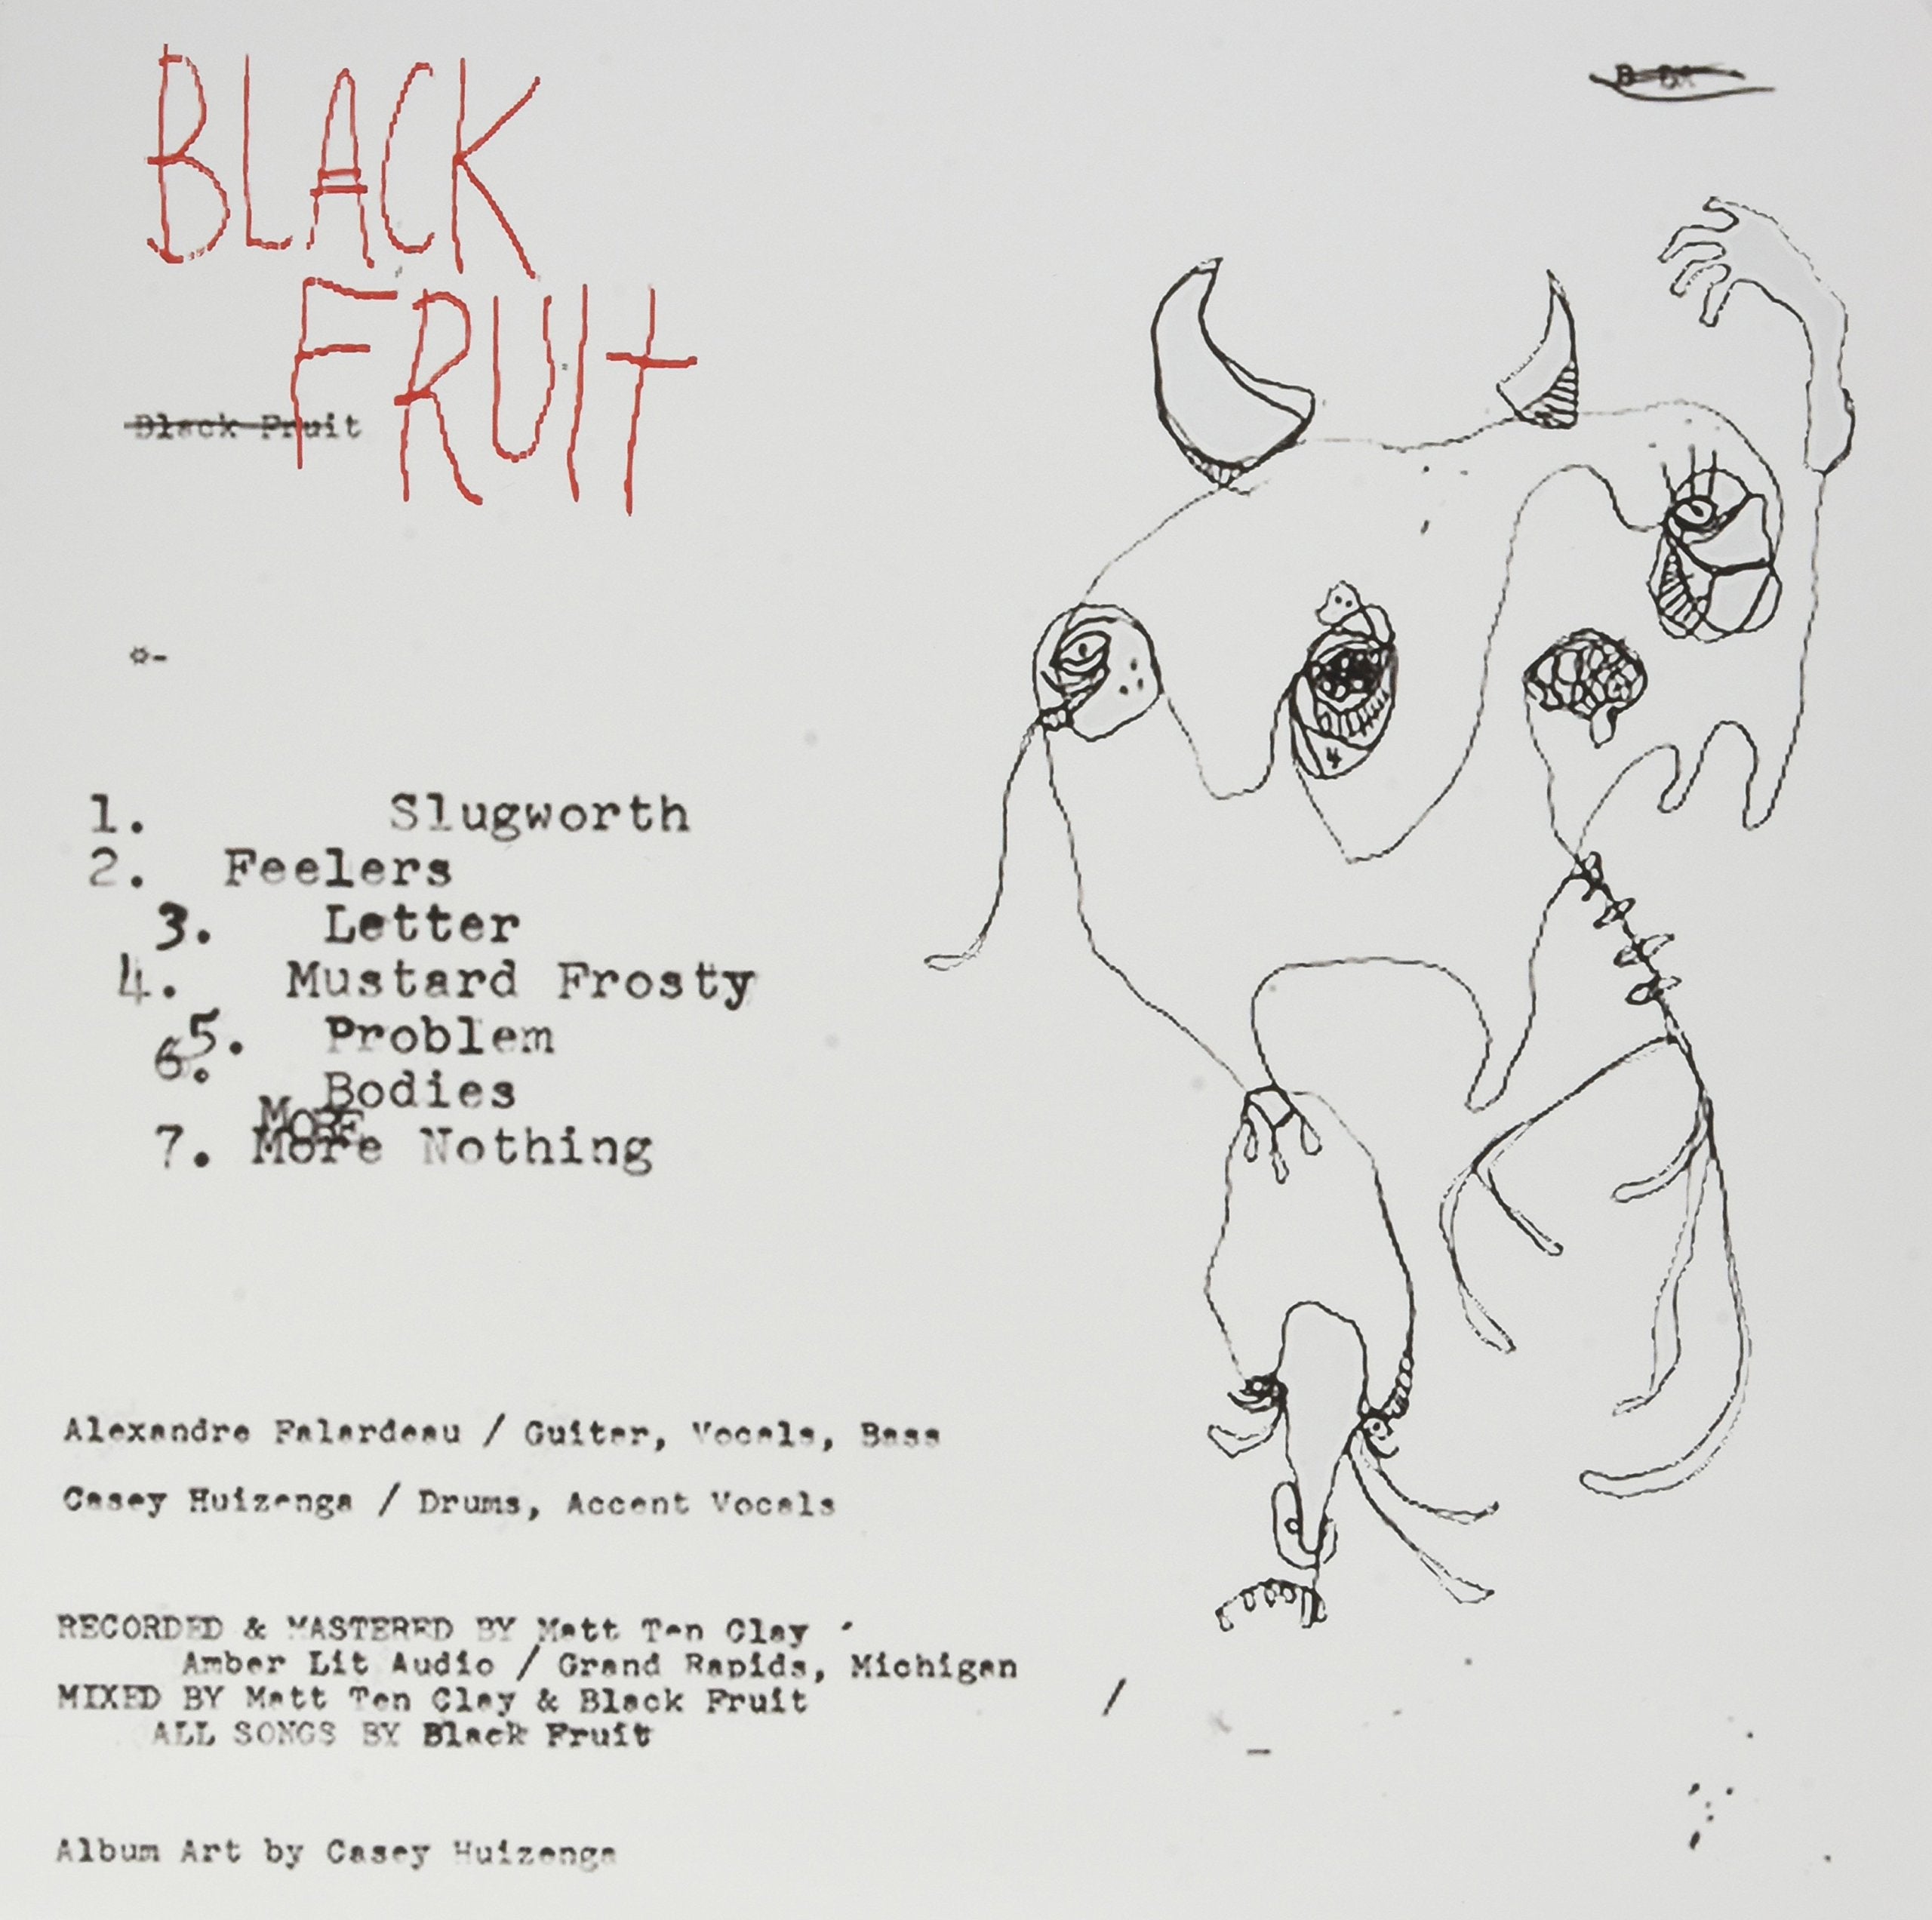 BLACK
FRUIT
Black Fruit
1. Slugworth
2. Feelers
3. Letter
4. Mustard Frosty
5. Problem
6. Bodies
MORE
7. More Nothing
Alexandre Falardeau / Guiter, Vocals, Bass
Casey Huizenga / Drums, Accent Vocals
RECORDED & MASTERED BY Matt Ten Clay
Amber Lit Audio / Grand Rapids, Michigan
MIXED BY Matt Ten Clay & Black Fruit
ALL SONGS BY Black Fruit
Album Art by Casey Huizenga